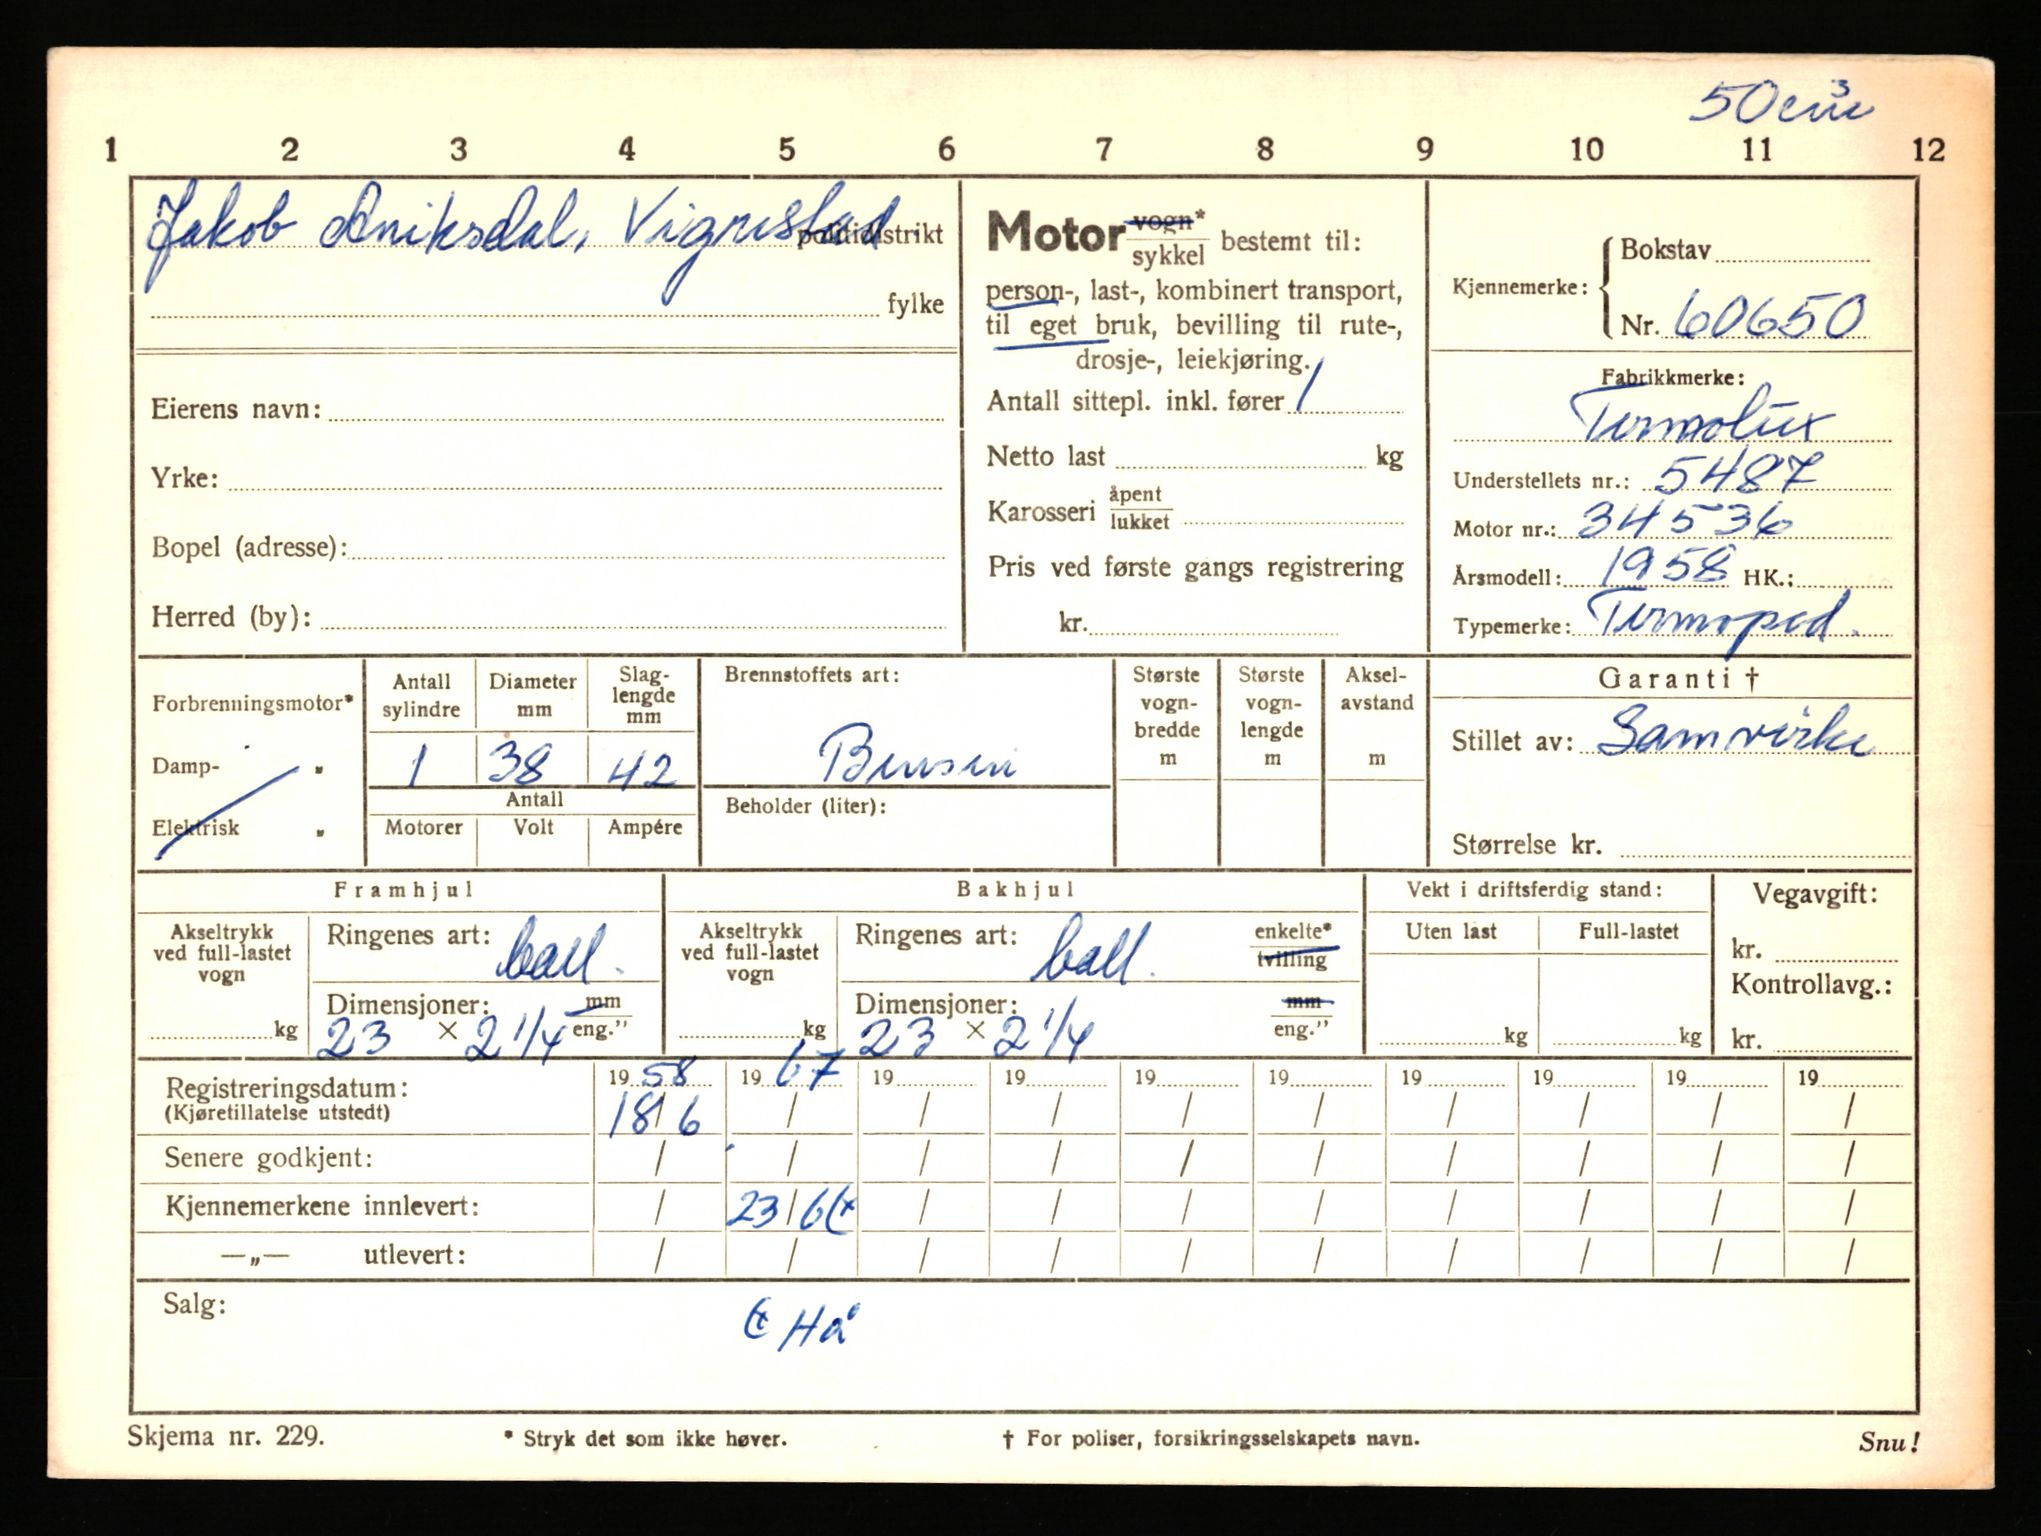 50 cm³
1 2 3 4 5 6 7 8 9 10 11 12
Jakob Aniksdal, Vigrestad politidistrikt
fylke
Eierens navn:
Yrke:
Bopel (adresse):
Herred (by):
Motor vogn* / sykkel bestemt til:
person-, last-, kombinert transport,
til eget bruk, bevilling til rute-,
drosje-, leiekjøring.
Antall sittepl. inkl. fører 1
Netto last kg
Karosseri åpent / lukket
Pris ved første gangs registrering
kr.
Kjennemerke: Bokstav
Nr. 60650
Fabrikkmerke:
Termolux
Understellets nr.: 5487
Motor nr.: 34536
Årsmodell: 1958 HK.:
Typemerke: Termoped.
Forbrenningsmotor*
Damp- „
Elektrisk „
Antall sylindre
Diameter mm
Slag-lengde mm
1 38 42
Antall
Motorer Volt Ampére
Brennstoffets art:
Bensin
Beholder (liter):
Største vogn-bredde m
Største vogn-lengde m
Aksel-avstand m
Garanti †
Stillet av: Samvirke
Størrelse kr.
Framhjul
Akseltrykk ved full-lastet vogn
kg
Ringenes art: ball.
Dimensjoner: mm / eng."
23 × 2 1/4
Bakhjul
Akseltrykk ved full-lastet vogn
kg
Ringenes art: ball. enkelte* / tvilling
Dimensjoner: mm / eng."
23 × 2 1/4
Vekt i driftsferdig stand:
Uten last Full-lastet
kg kg
Vegavgift:
kr.
Kontrollavg.:
kr.
19 58 19 67 19 19 19 19 19 19 19 19
Registreringsdatum:
(Kjøretillatelse utstedt)
18/6 / / / / / / / / /
Senere godkjent: / / / / / / / / / /
Kjennemerkene innlevert: / 23/6 (x / / / / / / / /
—„— utlevert: / / / / / / / / / /
Salg:
(x Hå
Skjema nr. 229.
* Stryk det som ikke høver.
† For poliser, forsikringsselskapets navn.
Snu!